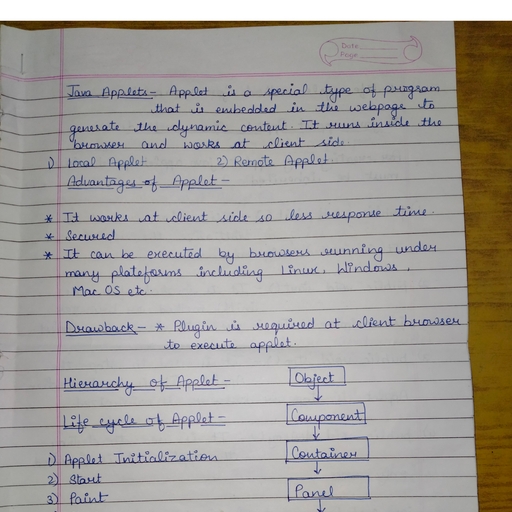 Date
Page
Java Applets - Applet is a special type of program
that is embedded in the webpage to
generate the dynamic content. It runs inside the
browser and works at client side.
1) Local Applet 2) Remote Applet.
Advantages of Applet -
* It works at client side so less response time.
* Secured
* It can be executed by browsers running under
many plateforms including Linux, Windows,
Mac OS etc.
Drawback - * Plugin is required at client browser
to execute applet.
Hierarchy of Applet - Object
Life cycle of Applet - Component
1) Applet Initialization Container
2) Start
3) Paint Panel